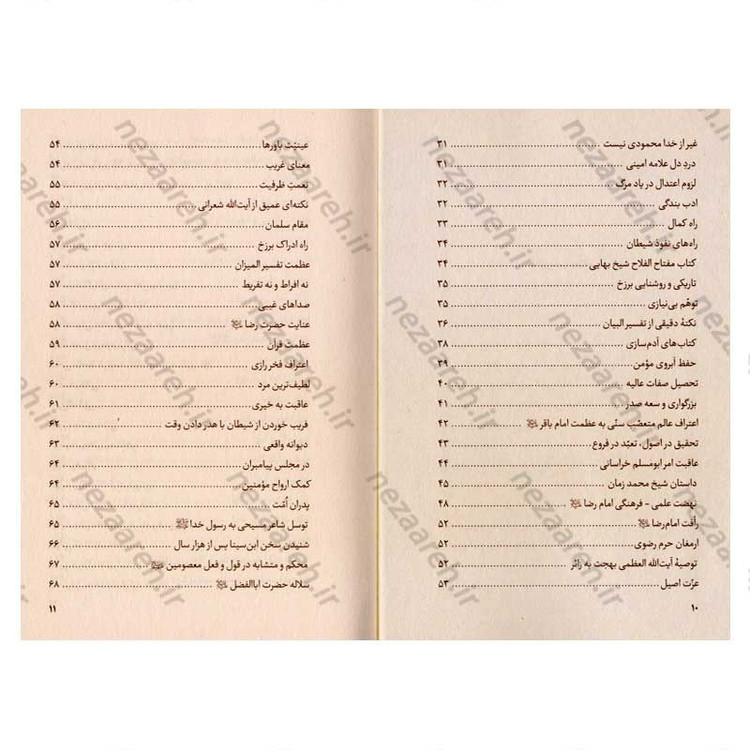 غیر از خدا محمودی نیست ۳۱
دردِ دل علامه امینی ۳۱
لزوم اعتدال در یاد مرگ ۳۲
ادب بندگی ۳۲
راه کمال ۳۳
راه‌های نفوذ شیطان ۳۴
کتاب مفتاح الفلاح شیخ بهایی ۳۴
تاریکی و روشنایی برزخ ۳۵
توهّم بی‌نیازی ۳۵
نکتهٔ دقیقی از تفسیر البیان ۳۶
کتاب‌های آدم‌سازی ۳۸
حفظ آبروی مؤمن ۳۹
تحصیل صفات عالیه ۴۰
بزرگواری و سعه صدر ۴۱
اعتراف عالم متعصّب سنّی به عظمت امام باقر ۴۲
تحقیق در اصول، تعبّد در فروع ۴۳
عاقبت امر ابومسلم خراسانی ۴۴
داستان شیخ محمد زمان ۴۵
نهضت علمی - فرهنگی امام رضا ۴۸
رأفت امام رضا ۵۲
ارمغان حرم رضوی ۵۲
توصیهٔ آیت‌الله العظمی بهجت به زائر ۵۲
عزّت اصیل ۵۳
۱۰
عینیّت باورها ۵۴
معنای غریب ۵۴
نعمتِ ظرفیت ۵۵
نکته‌ای عمیق از آیت‌الله شعرانی ۵۵
مقام سلمان ۵۶
راه ادراک برزخ ۵۷
عظمت تفسیر المیزان ۵۷
نه افراط و نه تفریط ۵۷
صداهای غیبی ۵۸
عنایت حضرت رضا ۵۸
عظمت قرآن ۵۹
اعتراف فخر رازی ۶۰
لطیف‌ترین مرد ۶۰
عاقبت به خیری ۶۱
فریب خوردن از شیطان با هدر دادن وقت ۶۲
دیوانه واقعی ۶۳
در مجلس پیامبران ۶۴
کمک ارواح مؤمنین ۶۴
پدران اُمّت ۶۵
توسل شاعر مسیحی به رسول خدا ۶۵
شنیدن سخن ابن‌سینا پس از هزار سال ۶۶
محکم و متشابه در قول و فعل معصومین ۶۷
سلاله حضرت اباالفضل ۶۸
۱۱
nezaareh.ir